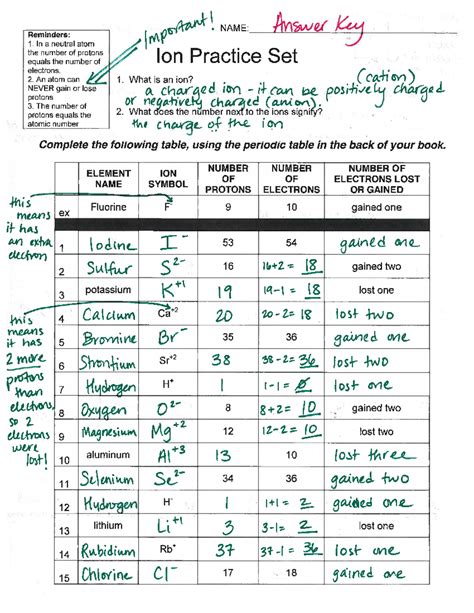 Reminders:
1. In a neutral atom
the number of protons
equals the number of
electrons.
2. An atom can
NEVER gain or lose
protons
3. The number of
protons equals the
atomic number
Important!
NAME: Answer Key
Ion Practice Set
1. What is an ion? (cation)
a charged ion - it can be positively charged
or negatively charged (anion).
2. What does the number next to the ions signify?
the charge of the ion
Complete the following table, using the periodic table in the back of your book.
ELEMENT NAME ION SYMBOL NUMBER OF PROTONS NUMBER OF ELECTRONS NUMBER OF ELECTRONS LOST OR GAINED
ex Fluorine F⁻ 9 10 gained one
1 Iodine I⁻ 53 54 gained one
2 Sulfur S²⁻ 16 16+2 = 18 gained two
3 potassium K⁺¹ 19 19-1 = 18 lost one
4 Calcium Ca⁺² 20 20-2= 18 lost two
5 Bromine Br⁻ 35 36 gained one
6 Strontium Sr⁺² 38 38-2= 36 lost two
7 Hydrogen H⁺ 1 1-1= 0 lost one
8 Oxygen O²⁻ 8 8+2= 10 gained two
9 Magnesium Mg⁺² 12 12-2= 10 lost two
10 aluminum Al⁺³ 13 10 lost three
11 Selenium Se²⁻ 34 36 gained two
12 Hydrogen H⁻ 1 1+1= 2 gained one
13 lithium Li⁺¹ 3 3-1= 2 lost one
14 Rubidium Rb⁺ 37 37-1= 36 lost one
15 Chlorine Cl⁻ 17 18 gained one
this
means
it has
an extra
electron
this
means
it has
2 more
protons
than
electrons,
so 2
electrons
were
lost!